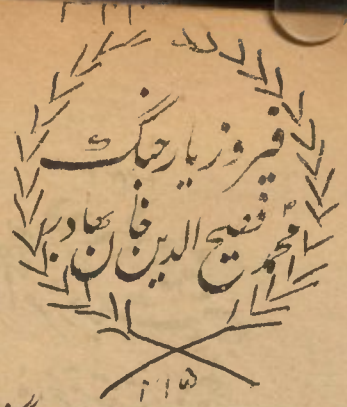 فیروز یار جنگ
محمد فصیح الدین خان بہادر